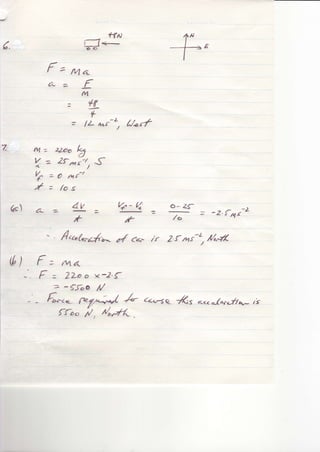 6.
48N
N
E
F = Ma
a = F/M
= 48/4
= 12 ms⁻², West
7. M = 2200 kg
V = 25 ms⁻¹, S
V = 0 ms⁻¹
t = 10 s
(a) a = ΔV/t = (Vf - Vi)/t = (0 - 25)/10 = -2.5 ms⁻²
∴ Acceleration of car is 2.5 ms⁻², North
(b) F = ma
∴ F = 2200 x -2.5
= -5500 N
∴ Force required to cause this acceleration is
5500 N, North.